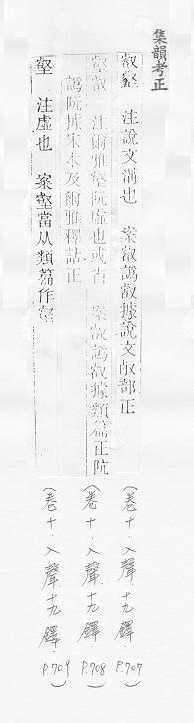 集韻考正
叡壑　注說文溝也　案叡譌叡據說文㕡部正
壑叡　注爾雅壑阬虛也或省　案叡譌叡據類篇正阬
譌阮據宋本及爾雅釋詁正
壑　注虛也　案壑當从類篇作壑
(卷十．入聲十九鐸．P.707)
(卷十．入聲十九鐸．P.708)
(卷十．入聲十九鐸．P.709)